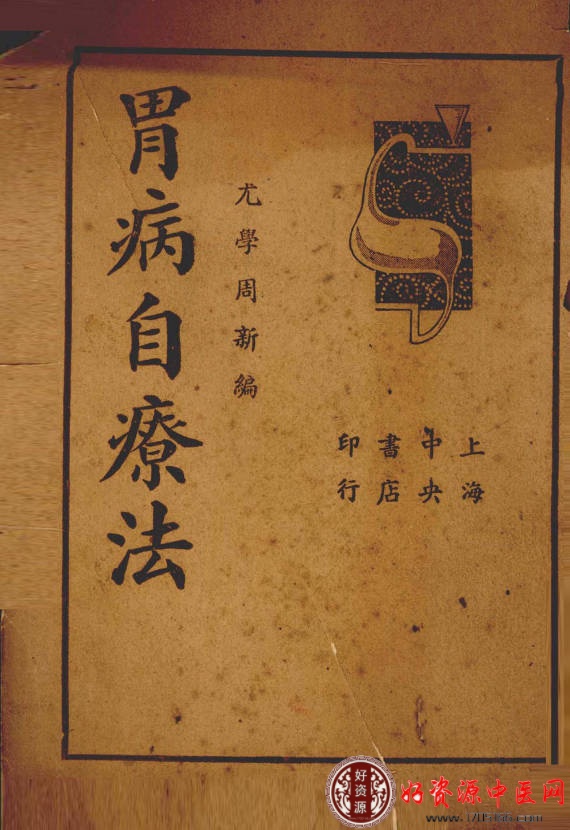 上海
中央
書店
印行
尤學周新編
胃病自療法
好资源
好资源中医网